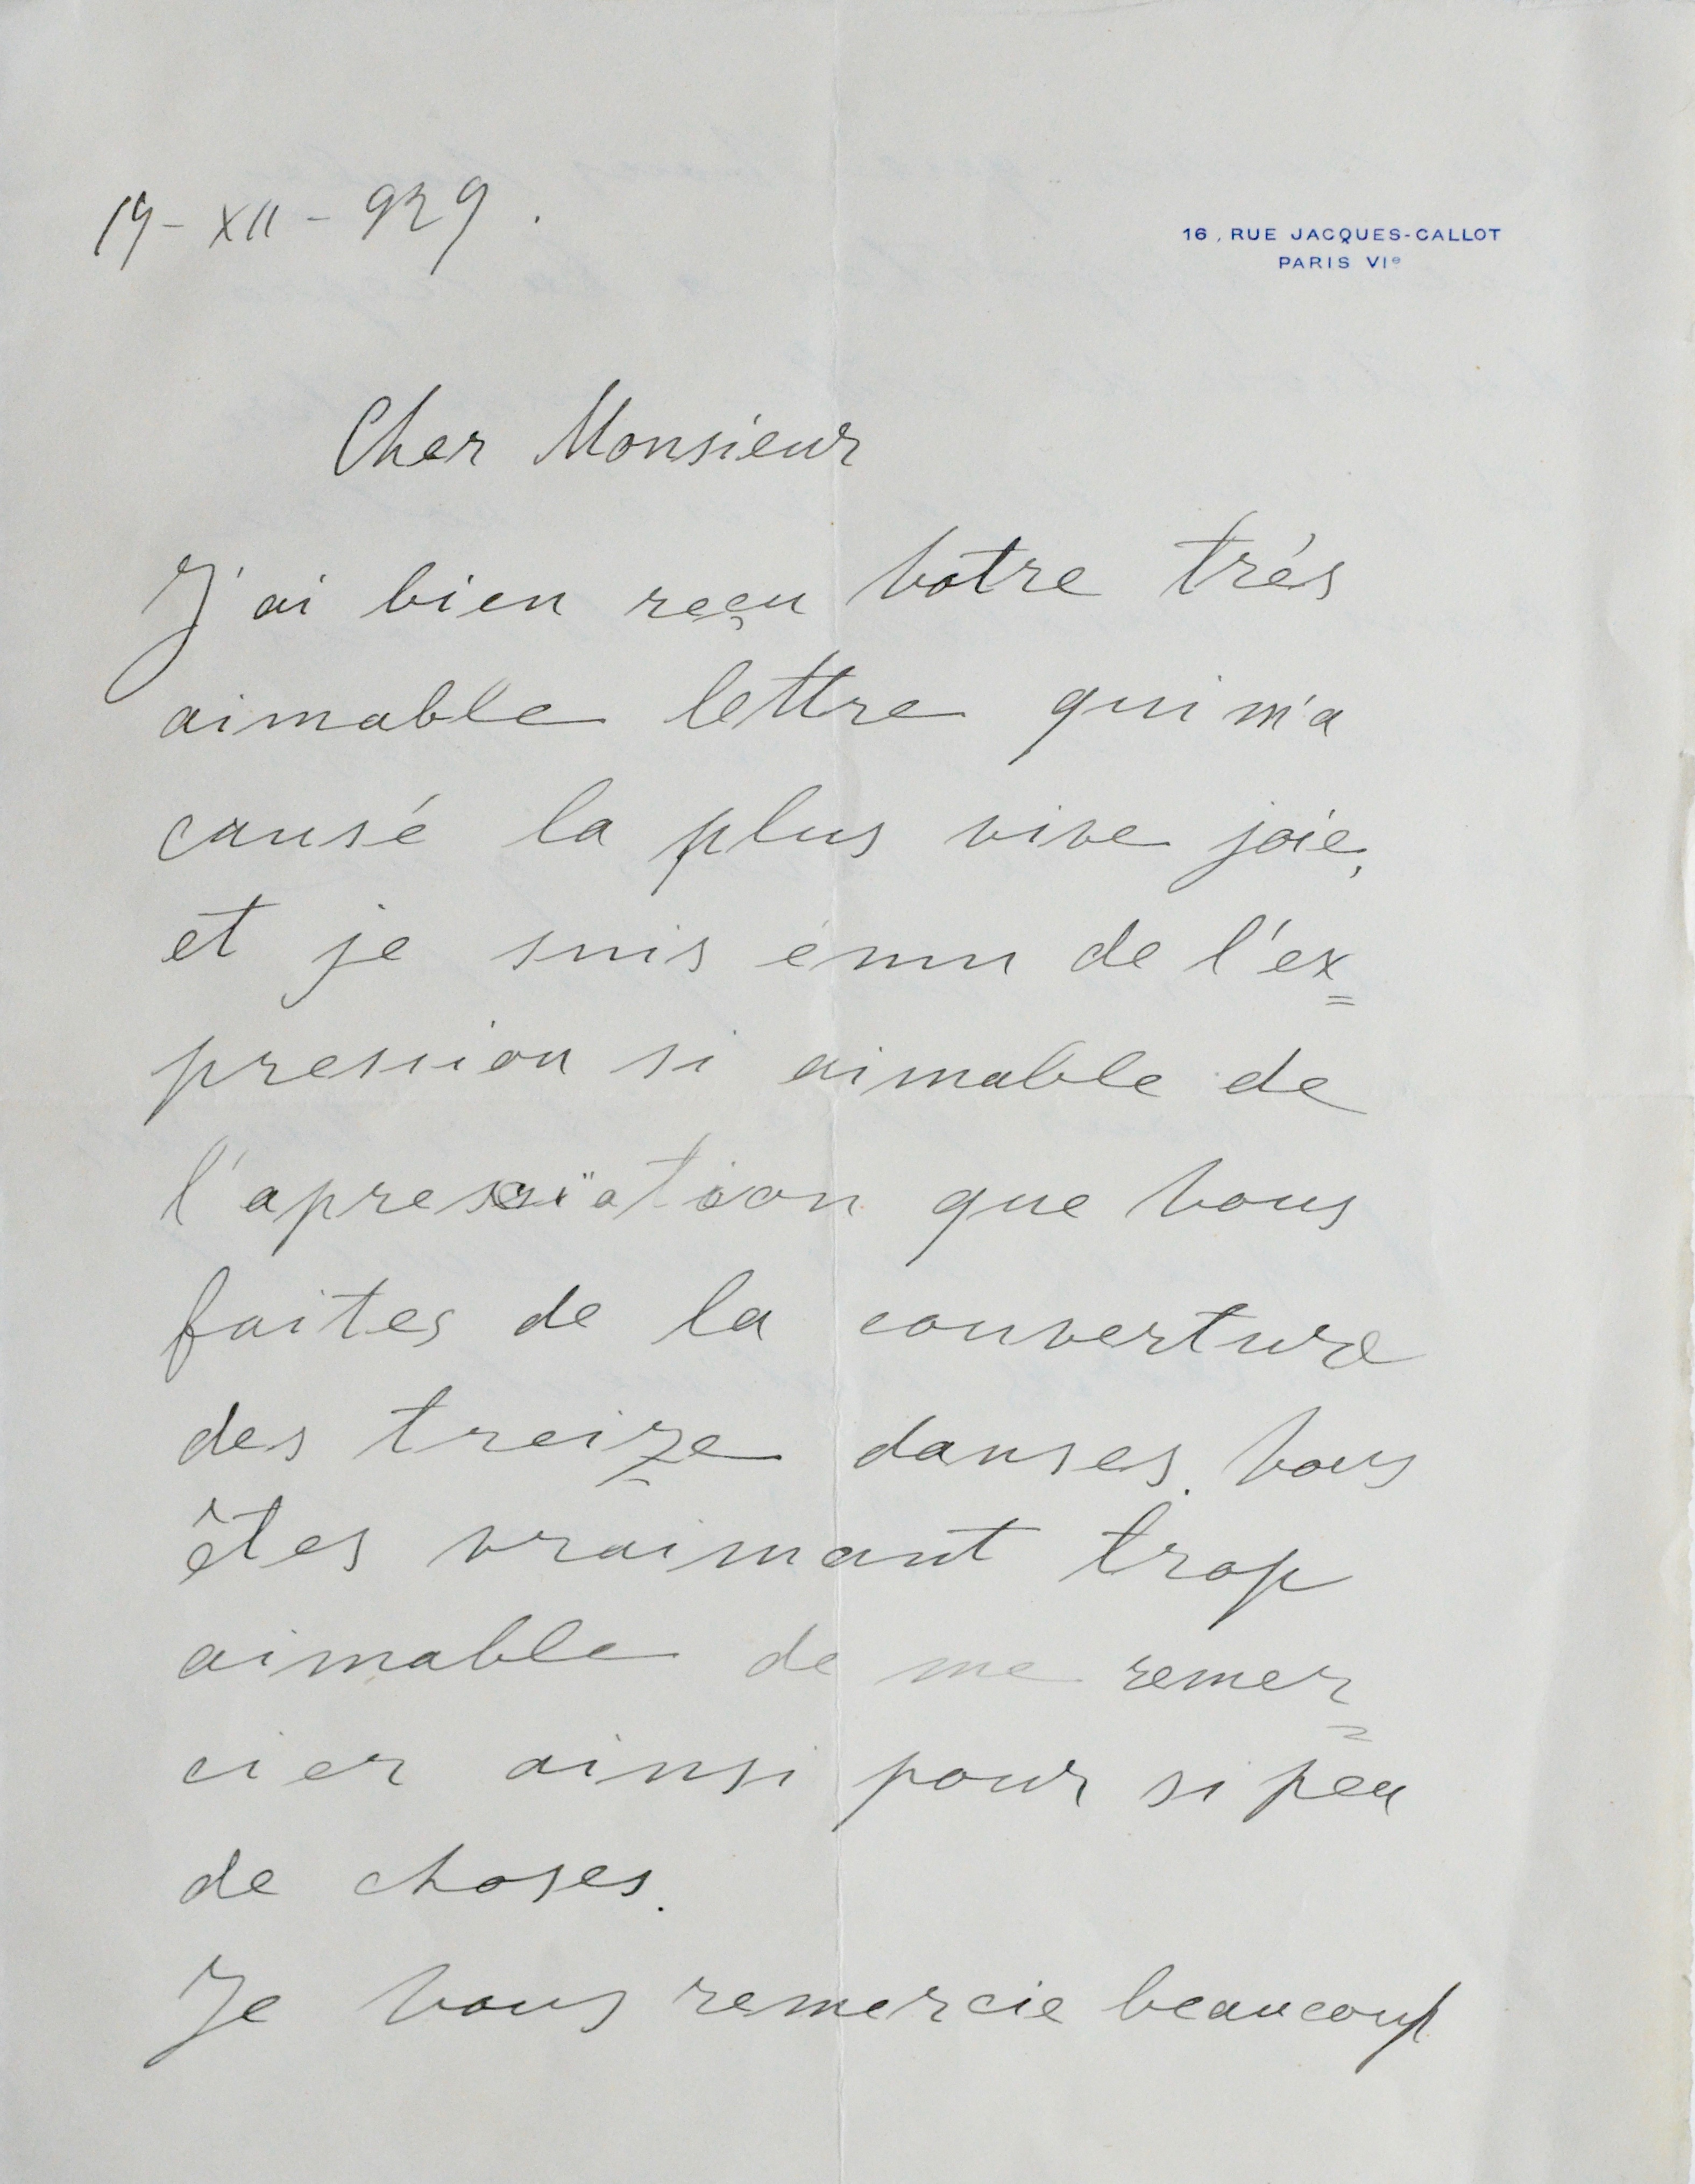 19-XII-929.
16, RUE JACQUES-CALLOT
PARIS VIe
Cher Monsieur
J'ai bien reçu votre trés
aimable lettre qui m'a
causé la plus vive joie,
et je suis ému de l'ex=
pression si aimable de
l'apressiation que vous
faites de la couverture
des treize danses. Vous
êtes vraimant trop
aimable de me remer=
cier ainsi pour si peu
de choses.
Je vous remercie beaucoup